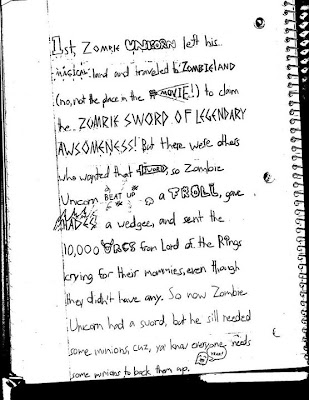 1st, ZOMBIE UNICORN left his
MAGICAL land and traveled to ZOMBIELAND
(no, not the place in the MOVIE!) to claim
the ZOMBIE SWORD OF LEGENDARY
AWSOMENESS! But there were others
who wanted that SWORD, so Zombie
Unicorn BEAT UP a TROLL, gave
HADES a wedgee, and sent the
10,000 ORCS from Lord of the Rings
crying for their mommies, even though
they didn't have any. So now Zombie
Unicorn had a sword, but he still needed
some minions, cuz, you know everyone needs
some minions to back them up.